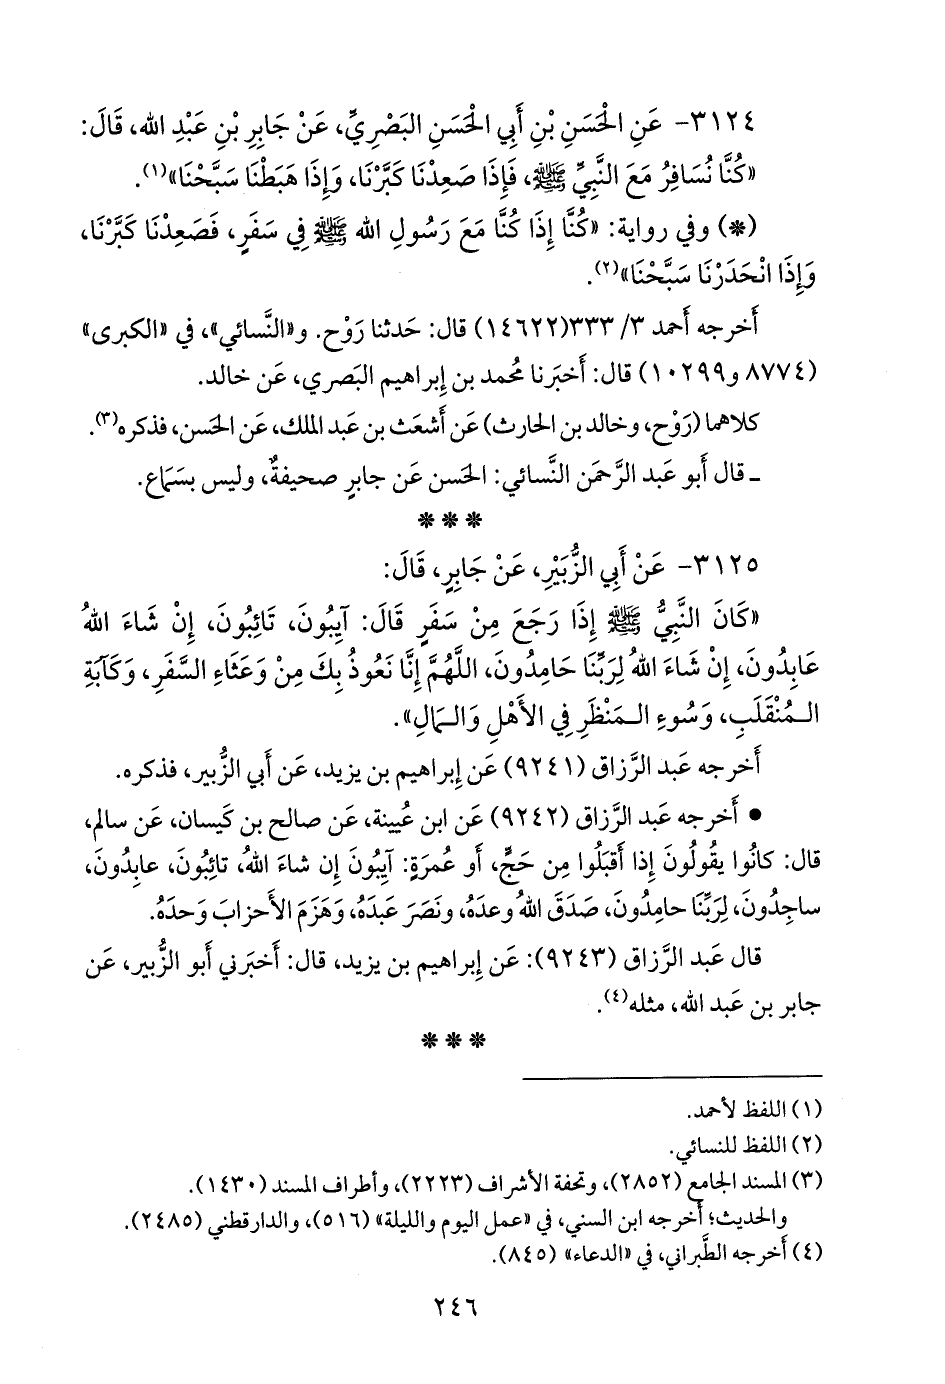 ٣١٢٤- عَنِ الْحَسَنِ بْنِ أَبِي الْحَسَنِ البَصْرِيِّ، عَنْ جَابِرِ بْنِ عَبْدِ الله، قَالَ:
«كُنَّا نُسَافِرُ مَعَ النَّبِيِّ ﷺ، فَإِذَا صَعِدْنَا كَبَّرْنَا، وَإِذَا هَبَطْنَا سَبَّحْنَا»(١).
(*) وفي رواية: «كُنَّا إِذَا كُنَّا مَعَ رَسُولِ الله ﷺ فِي سَفَرٍ، فَصَعِدْنَا كَبَّرْنَا،
وَإِذَا انْحَدَرْنَا سَبَّحْنَا»(٢).
أَخرجه أَحمد ٣/ ٣٣٣(١٤٦٢٢) قال: حَدثنا رَوْح. و«النَّسائي»، في «الكبرى»
(٨٧٧٤ و١٠٢٩٩) قال: أَخبَرنا مُحمد بن إِبراهيم البَصري، عَن خالد.
كلاهما (رَوْح، وخالد بن الحارث) عَن أَشعَث بن عَبد الملك، عَن الحَسن، فذكره(٣).
ـ قال أَبو عَبد الرَّحمَن النَّسائي: الحَسن عَن جابرٍ صحيفةٌ، وليس بسَمَاع.
* * *
٣١٢٥- عَنْ أَبِي الزُّبَيْرِ، عَنْ جَابِرٍ، قَالَ:
«كَانَ النَّبِيُّ ﷺ إِذَا رَجَعَ مِنْ سَفَرٍ قَالَ: آيِبُونَ، تَائِبُونَ، إِنْ شَاءَ اللهُ
عَابِدُونَ، إِنْ شَاءَ اللهُ لِرَبِّنَا حَامِدُونَ، اللَّهُمَّ إِنَّا نَعُوذُ بِكَ مِنْ وَعَثَاءِ السَّفَرِ، وَكَآبَةِ
الـمُنْقَلَبِ، وَسُوءِ الـمَنْظَرِ فِي الأَهْلِ وَالـمَالِ».
أَخرجه عَبد الرَّزاق (٩٢٤١) عَن إِبراهيم بن يزيد، عَن أَبي الزُّبير، فذكره.
• أَخرجه عَبد الرَّزاق (٩٢٤٢) عَن ابن عُيينة، عَن صالح بن كَيسان، عَن سالم،
قال: كانُوا يقُولُونَ إِذا أَقبَلُوا مِن حَجٍّ، أَو عُمرَةٍ: آيِبُونَ إِن شاءَ اللهُ، تائِبُونَ، عابِدُونَ،
ساجِدُونَ، لِرَبِّنا حامِدُونَ، صَدَقَ اللهُ وعدَهُ، ونَصَرَ عَبدَهُ، وَهَزَمَ الأَحزابَ وَحدَهُ.
قال عَبد الرَّزاق (٩٢٤٣): عَن إِبراهيم بن يزيد، قال: أَخبَرني أَبو الزُّبير، عَن
جابر بن عَبد الله، مثله(٤).
* * *
(١) اللفظ لأحمد.
(٢) اللفظ للنسائي.
(٣) المسند الجامع (٢٨٥٢)، وتحفة الأشراف (٢٢٢٣)، وأطراف المسند (١٤٣٠).
والحديث؛ أخرجه ابن السني، في «عمل اليوم والليلة» (٥١٦)، والدارقطني (٢٤٨٥).
(٤) أَخرجه الطَّبراني، في «الدعاء» (٨٤٥).
٢٤٦